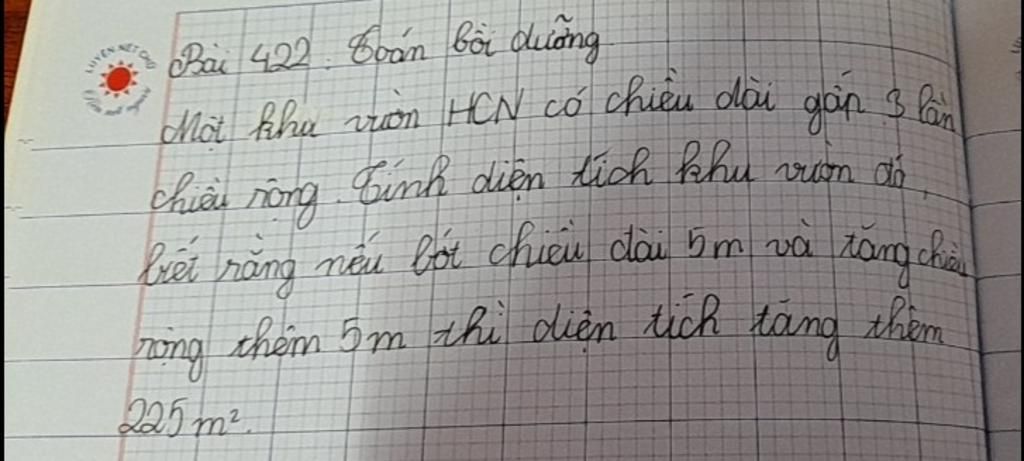 LUYỆN NÉT CHỮ
Bài 422. Toán bồi dưỡng
Một khu vườn HCN có chiều dài gấp 3 lần
chiều rộng. Tính diện tích khu vườn đó,
biết rằng nếu bớt chiều dài 5m và tăng chiều
rộng thêm 5m thì diện tích tăng thêm
225m².